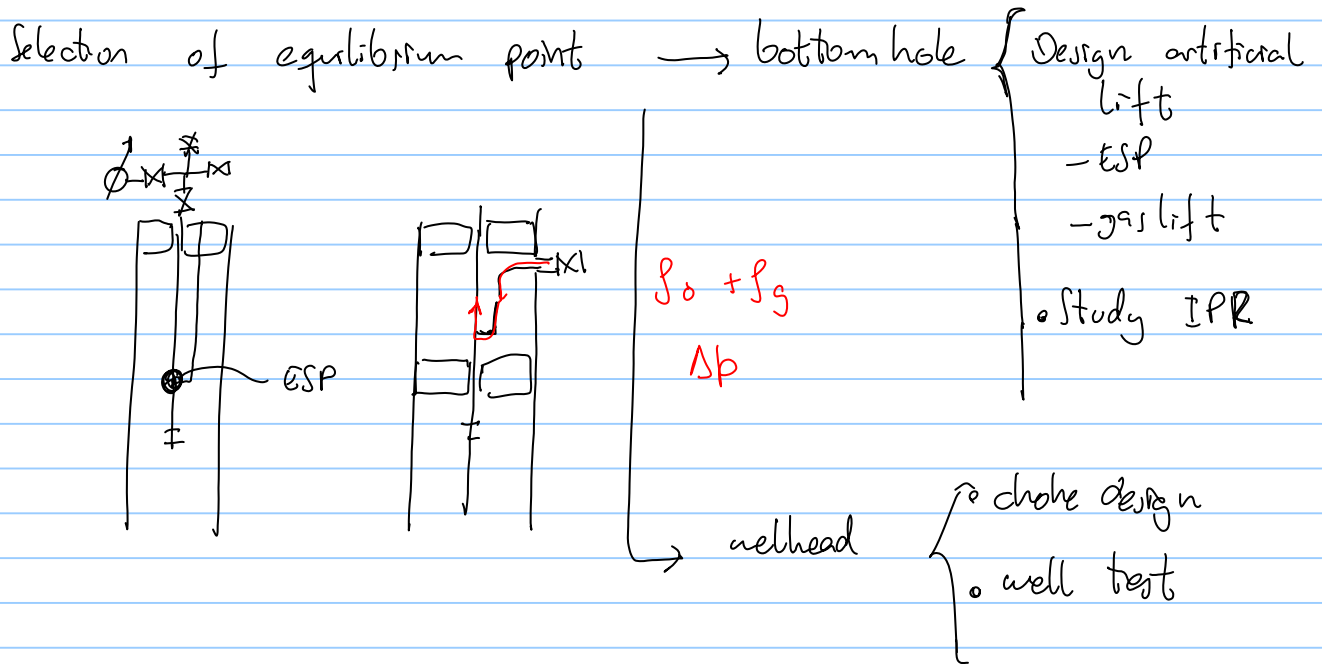 Selection of equilibrium point → bottomhole
Design artificial
lift
- ESP
- gas lift
• Study IPR
ESP
ρo + ρg
Δp
wellhead
• choke design
• well test